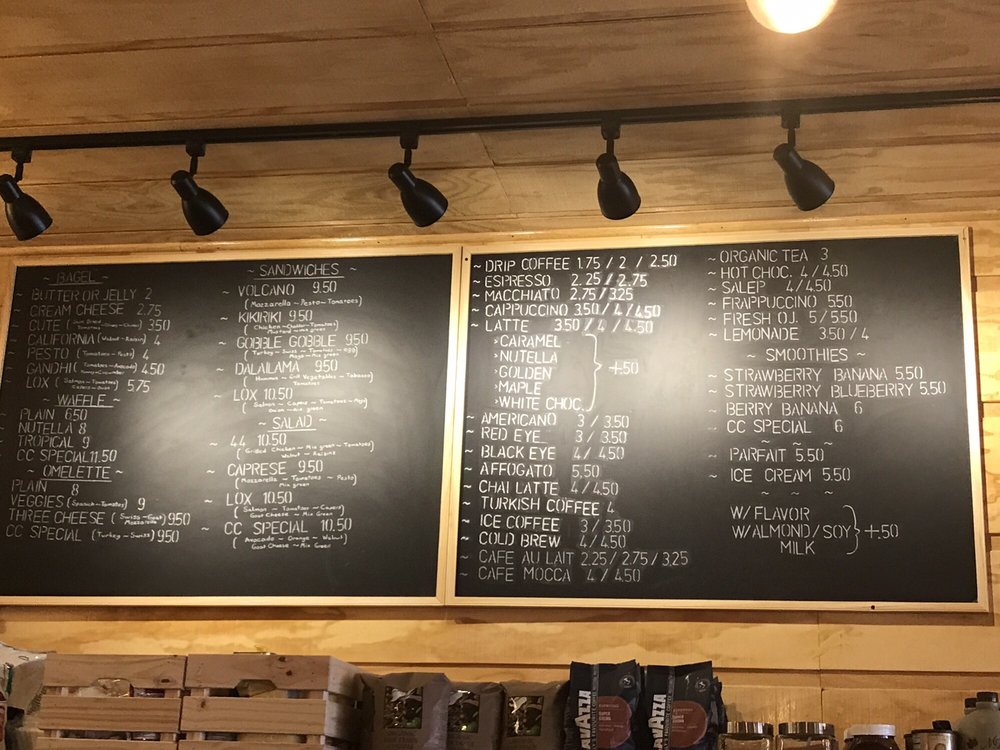 ~ BAGEL ~
~ BUTTER OR JELLY 2
~ CREAM CHEESE 2.75
~ CUTE ( Tomatoes ) 3.50
~ CALIFORNIA ( Walnut - Raisin ) 4
~ PESTO ( Tomatoes - Pesto ) 4
~ GANDHI ( Tomatoes - Avocado Cucumber ) 4.50
~ LOX ( Salmon - Tomatoes Capers - Onion ) 5.75
~ WAFFLE ~
PLAIN 6.50
NUTELLA 8
TROPICAL 9
CC SPECIAL 11.50
~ OMELETTE ~
PLAIN 8
VEGGIES ( Spanach - Tomatoes ) 9
THREE CHEESE ( Swiss - Goat Mozzarella ) 9.50
CC SPECIAL ( Turkey - Swiss ) 9.50
~ SANDWICHES ~
~ VOLCANO 9.50
( Mozzarella - Pesto - Tomatoes )
~ KIKIRIKI 9.50
( Chicken - Cheddar - Tomatoes
Mustard - Mix green )
~ GOBBLE GOBBLE 9.50
( Turkey - Swiss - Tomatoes - egg
Mayo - Mix green )
~ DALAILAMA 9.50
( Hummus - Grill Vegetables - Tabasco
Tomatoes )
~ LOX 10.50
( Salmon - Caper - Tomatoes - Mayo
Onion - Mix green )
~ SALAD ~
~ 44 10.50
( Grilled Chicken - Mix green - Tomatoes
Walnut - Raisins )
~ CAPRESE 9.50
( Mozzarella - Tomatoes - Pesto )
Mix green
~ LOX 10.50
( Salmon - Tomatoes - Capers
Goat Cheese - Mix Green )
~ CC SPECIAL 10.50
( Avocado - Orange - Walnut
Goat Cheese - Mix Green )
~ DRIP COFFEE 1.75 / 2 / 2.50
~ ESPRESSO 2.25 / 2.75
~ MACCHIATO 2.75 / 3.25
~ CAPPUCCINO 3.50 / 4 / 4.50
~ LATTE 3.50 / 4 / 4.50
>CARAMEL
>NUTELLA
>GOLDEN
>MAPLE
>WHITE CHOC.
+.50
~ AMERICANO 3 / 3.50
~ RED EYE 3 / 3.50
~ BLACK EYE 4 / 4.50
~ AFFOGATO 5.50
~ CHAI LATTE 4 / 4.50
~ TURKISH COFFEE 4
~ ICE COFFEE 3 / 3.50
~ COLD BREW 4 / 4.50
~ CAFE AU LAIT 2.25 / 2.75 / 3.25
~ CAFE MOCCA 4 / 4.50
~ ORGANIC TEA 3
~ HOT CHOC. 4 / 4.50
~ SALEP 4 / 4.50
~ FRAPPUCCINO 5.50
~ FRESH O.J. 5 / 5.50
~ LEMONADE 3.50 / 4
~ SMOOTHIES ~
~ STRAWBERRY BANANA 5.50
~ STRAWBERRY BLUEBERRY 5.50
~ BERRY BANANA 6
~ CC SPECIAL 6
~ ~ ~
~ PARFAIT 5.50
~ ICE CREAM 5.50
~ ~ ~
W/ FLAVOR
W/ALMOND/SOY
MILK
+.50
LAVAZZA
LAVAZZA